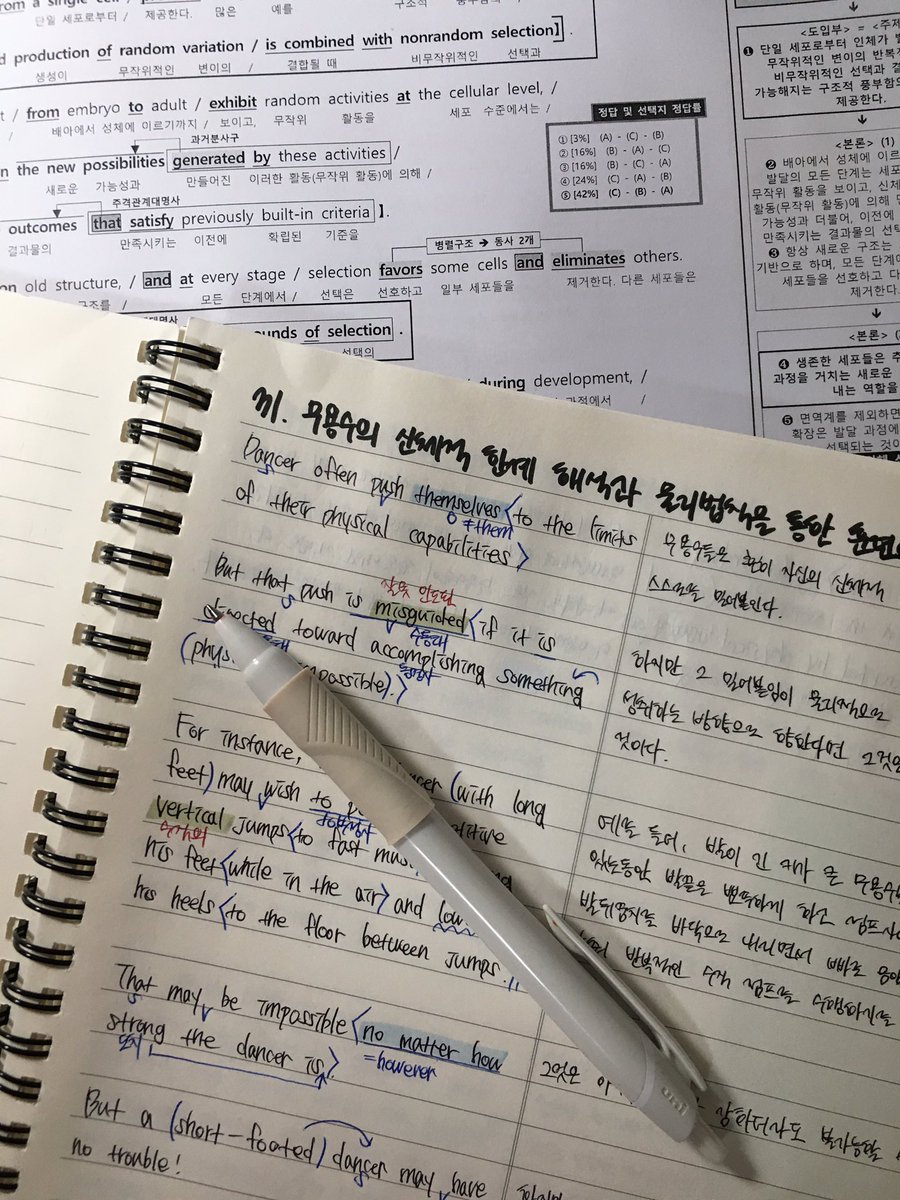 from a single cell /
단일 세포로부터 / 제공한다. 많은 예를
production of random variation / is combined with nonrandom selection】.
생성이 무작위적인 변이의 / 결합될 때 비무작위적인 선택과
/ from embryo to adult / exhibit random activities at the cellular level, /
/ 배아에서 성체에 이르기까지 / 보이고, 무작위 활동을 세포 수준에서는 /
과거분사구
the new possibilities generated by these activities /
새로운 가능성과 만들어진 이러한 활동(무작위 활동)에 의해 /
주격관계대명사
outcomes that satisfy previously built-in criteria 】.
결과물의 만족시키는 이전에 확립된 기준을
병렬구조 → 동사 2개
on old structure, / and at every stage / selection favors some cells and eliminates others.
구조를 / 모든 단계에서 / 선택은 선호하고 일부 세포들을 제거한다. 다른 세포들은
rounds of selection .
선택의
during development, /
과정에서 /
정답 및 선택지 정답률
① [3%] (A) - (C) - (B)
② [16%] (B) - (A) - (C)
③ [16%] (B) - (C) - (A)
④ [24%] (C) - (A) - (B)
⑤ [42%] (C) - (B) - (A)
<도입부> = <주제
❶ 단일 세포로부터 인체가
무작위적인 변이의 반복
비무작위적인 선택과
가능해지는 구조적 풍부함
제공한다.
<본론> (1)
❷ 배아에서 성체에 이르
발달의 모든 단계는 세포
무작위 활동을 보이고, 신체
활동(무작위 활동)에 의해
가능성과 더불어, 이전에
만족시키는 결과물의 선택
❸ 항상 새로운 구조는
기반으로 하며, 모든 단계에
세포들을 선호하고 다
제거한다.
<본론>
❹ 생존한 세포들은
과정을 거치는 새로운
내는 역할을
❺ 면역계를 제외하면
확장은 발달 과정에
선택되는 것이
31. 무용수의 신체적 한계 해석과 물리법칙을 통한
Dancer often push themselves <to the limits
≠them
of their physical capabilities>
But that push is misguided <if it is
잘못 인도된
directed toward accomplishing something
수동태
동명사
(phys impossible).>
For instance, (with long
feet) may wish to
vertical jumps <to fast
수직의
his feet <while in the air> and
his heels <to the floor between jumps.
That may be impossible <no matter how
=however
strong the dancer is>.
But a (short-footed) dancer may have
no trouble!
무용수들은 흔히 자신의 신체적
스스로를 밀어붙인다.
하지만 그 밀어붙임이 물리적으로
성취하는 방향으로 향한다면 그것은
것이다.
예를 들어, 발이 긴 키가 큰 무용수
있는동안 발끝을 뾰족하게 하고 점프사이
발뒤꿈치를 바닥으로 내리면서 빠른 음악
반복적인 수직 점프를 수행하기를
그것은
강하더라도 불가능할
uni